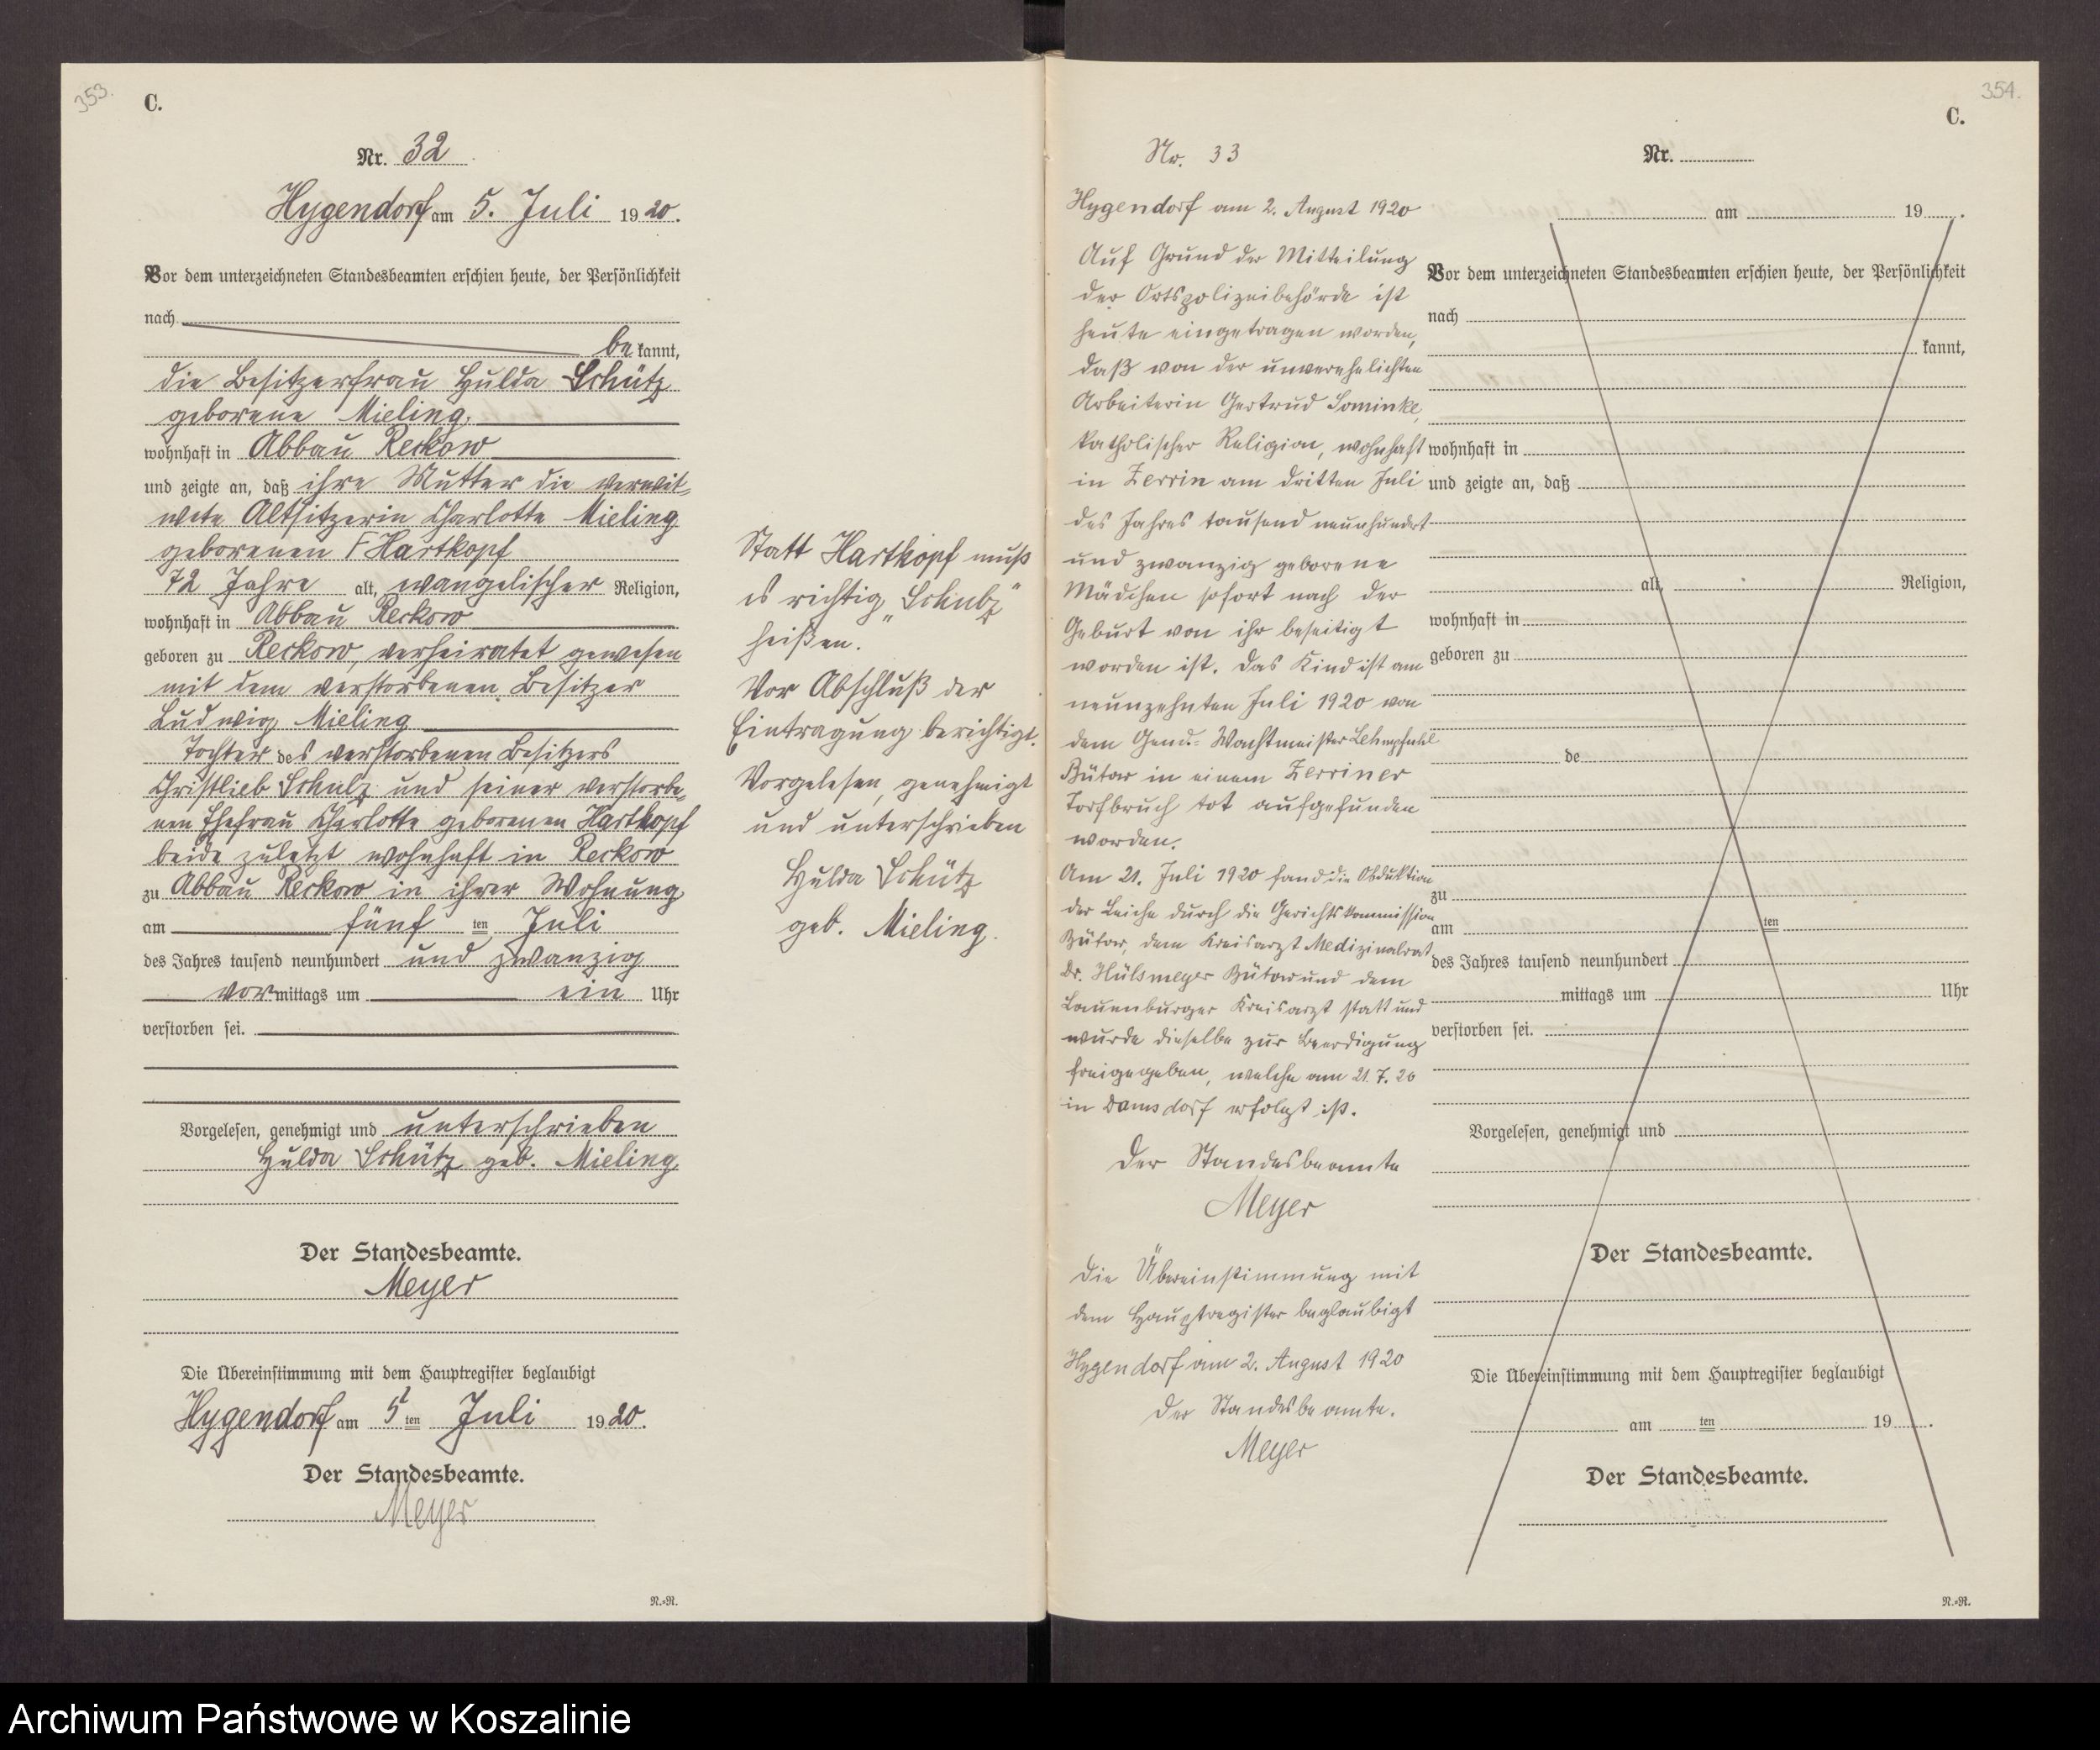 353.
C.
Nr. 32
Hygendorf am 5. Juli 1920.
Vor dem unterzeichneten Standesbeamten erschien heute, der Persönlichkeit
nach
be kannt,
die Besitzerfrau Hulda Schütz
geborene Mieling,
wohnhaft in Abbau Reckow
und zeigte an, daß ihre Mutter die verwit-
wete Altsitzerin Charlotte Mieling
geborenen F Hartkopf
72 Jahre alt, evangelischer Religion,
wohnhaft in Abbau Reckow
geboren zu Reckow, verheiratet gewesen
mit dem verstorbenen Besitzer
Ludwig Mieling
Tochter des verstorbenen Besitzers
Christlieb Schulz und seiner verstorbe-
nen Ehefrau Charlotte geborenen Hartkopf
beide zuletzt wohnhaft in Reckow
zu Abbau Reckow in ihrer Wohnung
am fünf ten Juli
des Jahres tausend neunhundert und zwanzig
vor mittags um ein Uhr
verstorben sei.
Vorgelesen, genehmigt und unterschrieben
Hulda Schütz geb. Mieling
Der Standesbeamte.
Meyer
Die Übereinstimmung mit dem Hauptregister beglaubigt
Hygendorf am 5 ten Juli 1920.
Der Standesbeamte.
Meyer
N.=N.
Statt Hartkopf muß
es richtig „Schulz"
heißen.
Vor Abschluß der
Eintragung berichtigt.
Vorgelesen, genehmigt
und unterschrieben
Hulda Schütz
geb. Mieling.
354.
C.
Nr. 33
Hygendorf am 2. August 1920
Auf Grund der Mitteilung
der Ortspolizeibehörde ist
heute eingetragen worden,
daß von der unverehelichten
Arbeiterin Gertrud Sominke,
katholischer Religion, wohnhaft
in Zerrin am dritten Juli
des Jahres tausend neunhundert
und zwanzig geborene
Mädchen sofort nach der
Geburt von ihr beseitigt
worden ist. Das Kind ist am
neunzehnten Juli 1920 von
dem Gend.- Wachtmeister Lehmpfuhl
Bütow in einem Zerriner
Torfbruch tot aufgefunden
worden.
Am 21. Juli 1920 fand die Obduktion
der Leiche durch die Gerichtskommission
Bütow, dem Kreisarzt Medizinalrat
Dr. Hülsmeyer Bütow und dem
Lauenburger Kreisarzt statt und
wurde dieselbe zur Beerdigung
freigegeben, welche am 21.7.20
in Damsdorf erfolgt ist.
Der Standesbeamte
Meyer
Die Übereinstimmung mit
dem Hauptregister beglaubigt
Hygendorf am 2. August 1920
Der Standesbeamte.
Meyer
Nr.
am 19 .
Vor dem unterzeichneten Standesbeamten erschien heute, der Persönlichkeit
nach
kannt,
wohnhaft in
und zeigte an, daß
alt, Religion,
wohnhaft in
geboren zu
de
zu
am ten
des Jahres tausend neunhundert
mittags um Uhr
verstorben sei.
Vorgelesen, genehmigt und
Der Standesbeamte.
Die Übereinstimmung mit dem Hauptregister beglaubigt
am ten 19 .
Der Standesbeamte.
N.=N.
Archiwum Państwowe w Koszalinie